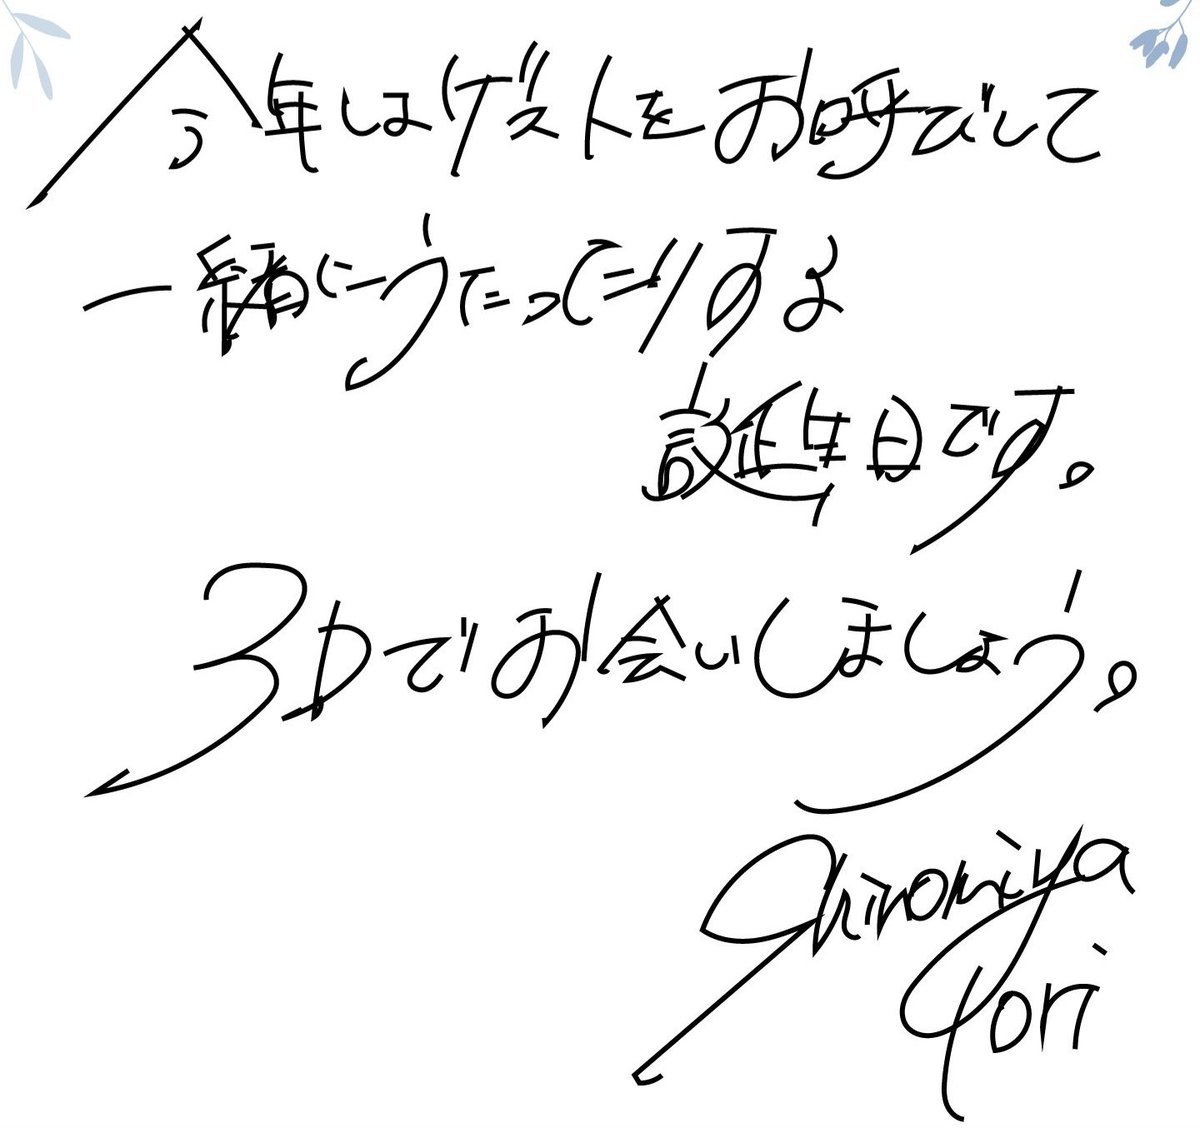 今年はゲストをお呼びして
一緒にうたったりする
誕生日です。
3Dでお会いしましょう。
Shiromiya
Yori